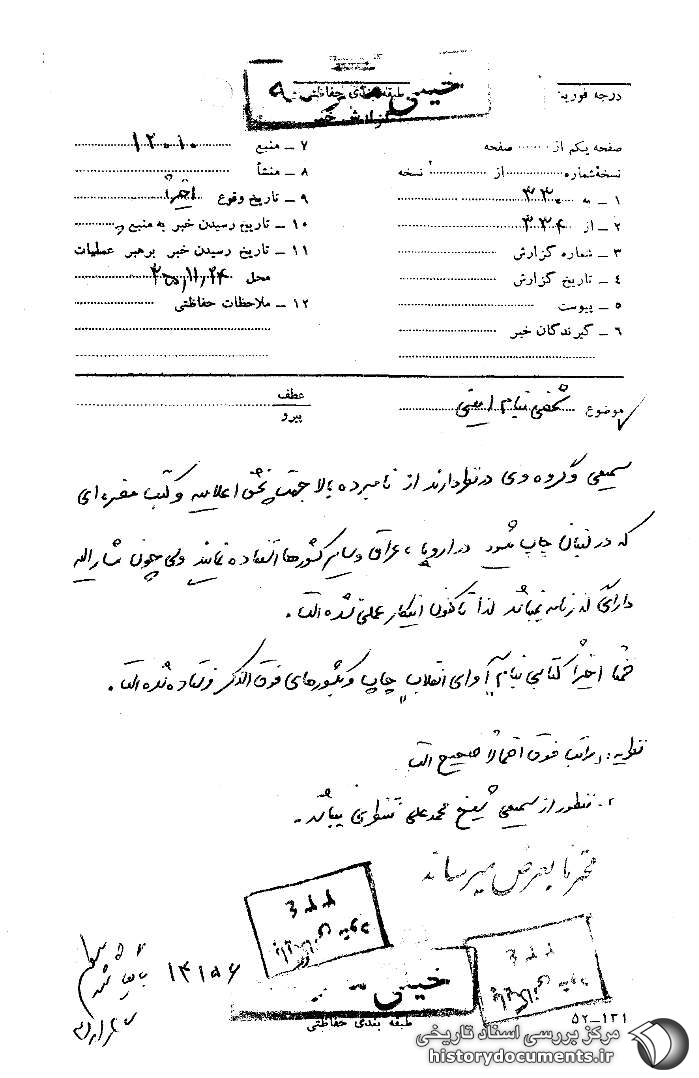 درجه فوریت
طبقه بندی حفاظتی
خیلی محرمانه
گزارش خبر
صفحه یکم از ........ صفحه
نسخه شماره ........ از ........ نسخه
۱ - به ۳۳۰
۲ - از ۳۳۴
۳ - شماره گزارش
۴ - تاریخ گزارش
۵ - پیوست
۶ - گیرندگان خبر
۷ - منبع ۱۲۰۱۰
۸ - منشأ
۹ - تاریخ وقوع اخیراً
۱۰ - تاریخ رسیدن خبر به منبع
۱۱ - تاریخ رسیدن خبر برهبر عملیات
محل
۱۲ - ملاحظات حفاظتی
موضوع شخصی بنام
عطف
پیرو
سمیعی و گروه وی در نظر دارند از نامبرده بالا جهت پخش اعلامیه و کتب مضره ای
که در لبنان چاپ میشود در اروپا، عراق و سایر کشورها استفاده نمایند ولی چون مشارالیه
دارای گذرنامه نمیباشد لذا تاکنون اینکار عملی نشده است.
ضمناً اخیراً کتابی بنام "آوای انقلاب" چاپ و بکشورهای فوق الذکر فرستاده شده است.
نظریه: مراتب فوق احتمالاً صحیح است
۲- منظور از سمیعی شیخ محمدعلی منتظری میباشد.
محترماً بعرض میرساند
۱۴۱۵۶
بایگانی شود
خیلی محرمانه
طبقه بندی حفاظتی
۵۲-۱۲۱
مرکز بررسی اسناد تاریخی
historydocuments.ir